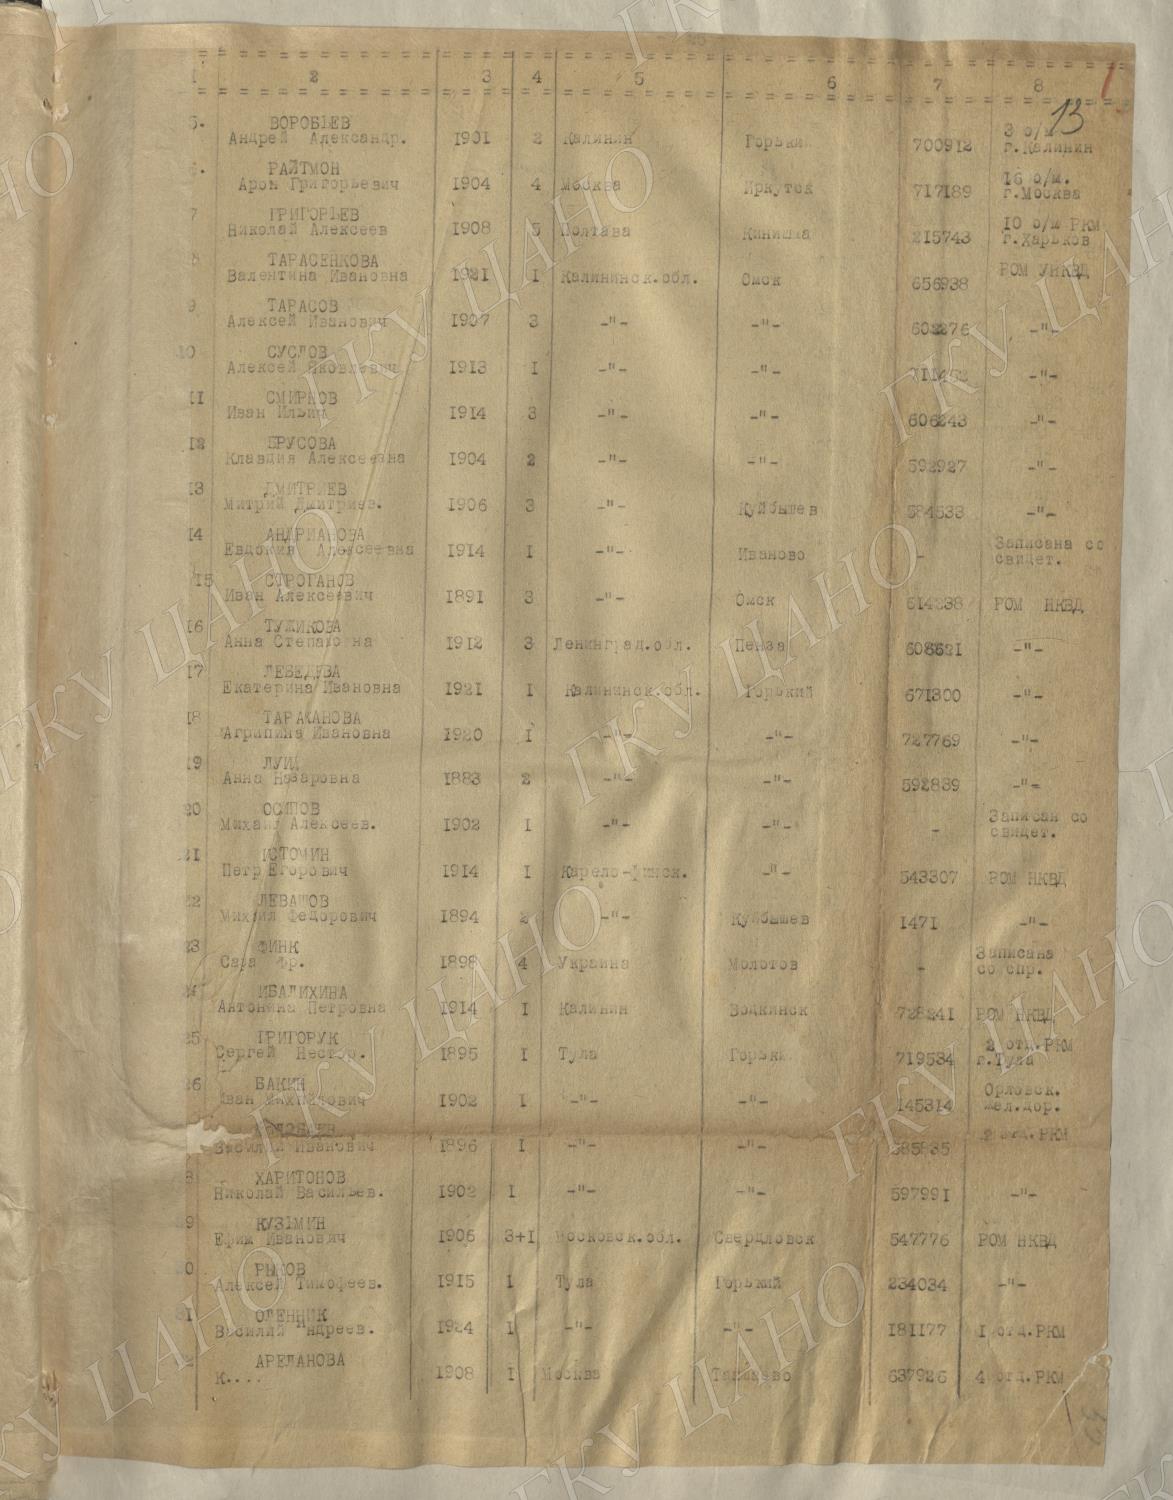 1 2 3 4 5 6 7 8
13
5. ВОРОБ1ЕВ 3 о/м
Андрей Александр. 1901 2 Калинин Горький 700912 г.Калинин
РАЙТМОН 16 о/м.
Арон Григорьевич 1904 4 Москва Иркутск 717189 г.Москва
7 ГРИГОР1ЕВ 10 о/м РКМ
Николай Алексеев 1908 5 Полтава Кинишма 215743 г.Харьков
8 ТАРАСЕНКОВА РОМ УНКВД
Валентина Ивановна 1921 I Калининск.обл. Омск 656938
9 ТАРАСОВ
Алексей Иванович 1907 3 -"- -"- 602276 -"-
10 СУСЛОВ
Алексей Яковлевич 1913 I -"- -"- -"-
II СМИРНОВ
Иван Ильич 1914 3 -"- -"- 606243 -"-
12 БРУСОВА
Клавдия Алексеевна 1904 2 -"- -"- 592927 -"-
13 ДМИТРИЕВ
Митрий Дмитриев. 1906 3 -"- Куйбышев 584533 -"-
14 АНДРИАНОВА Записана со
Евдокия Алексеевна 1914 I -"- Иваново - свидет.
15 СТРОГАНОВ
Иван Алексеевич 1891 3 -"- Омск 614238 РОМ НКВД
16 ТУЖИКОВА
Анна Степановна 1912 3 Ленинград.обл. Пенза 608621 -"-
17 ЛЕБЕДЕВА
Екатерина Ивановна 1921 I Калининск.обл. Горький 671300 -"-
18 ТАРАКАНОВА
Агрипина Ивановна 1920 I -"- -"- 727769 -"-
19 ЛУИД
Анна Назаровна 1883 2 -"- -"- 592839 -"-
20 ОСИПОВ Записан со
Михаил Алексеев. 1902 I -"- -"- - свидет.
21 ИСТОМИН
Петр Егорович 1914 I Карело-Финск. -"- 543307 РОМ НКВД
22 ЛЕВАШОВ
Михаил Федорович 1894 2 -"- Куйбышев 1471 -"-
23 ФИНК Записана
Сара Фр. 1898 4 Украина Молотов - со спр.
24 ИБАЛИХИНА
Антонина Петровна 1914 I Калинин Водкинск 728241 РОМ НКВД
25 ГРИГОРУК 2 отд.РКМ
Сергей Нестор. 1895 I Тула Горький 719534 г.Тула
26 БАКИН Орловск.
Иван Михайлович 1902 I -"- -"- 145314 жел.дор.
2 отд.РКМ
Василий Иванович 1896 I -"- -"-
8 ХАРИТОНОВ
Николай Васильев. 1902 I -"- -"- 597991 -"-
9 КУЗ1МИН
Ефим Иванович 1906 3+I Московск.обл. Свердловск 547776 РОМ НКВД
0 РЫКОВ
Алексей Тимофеев. 1915 I Тула Горький 234034 -"-
31 ОЛЕЙНИК
Василий Андреев. 1924 I -"- -"- 181177 I отд.РКМ
2 АРЕЛАНОВА
К.... 1908 I Москва 637926 4 отд.РКМ
ГКУ ЦАНО